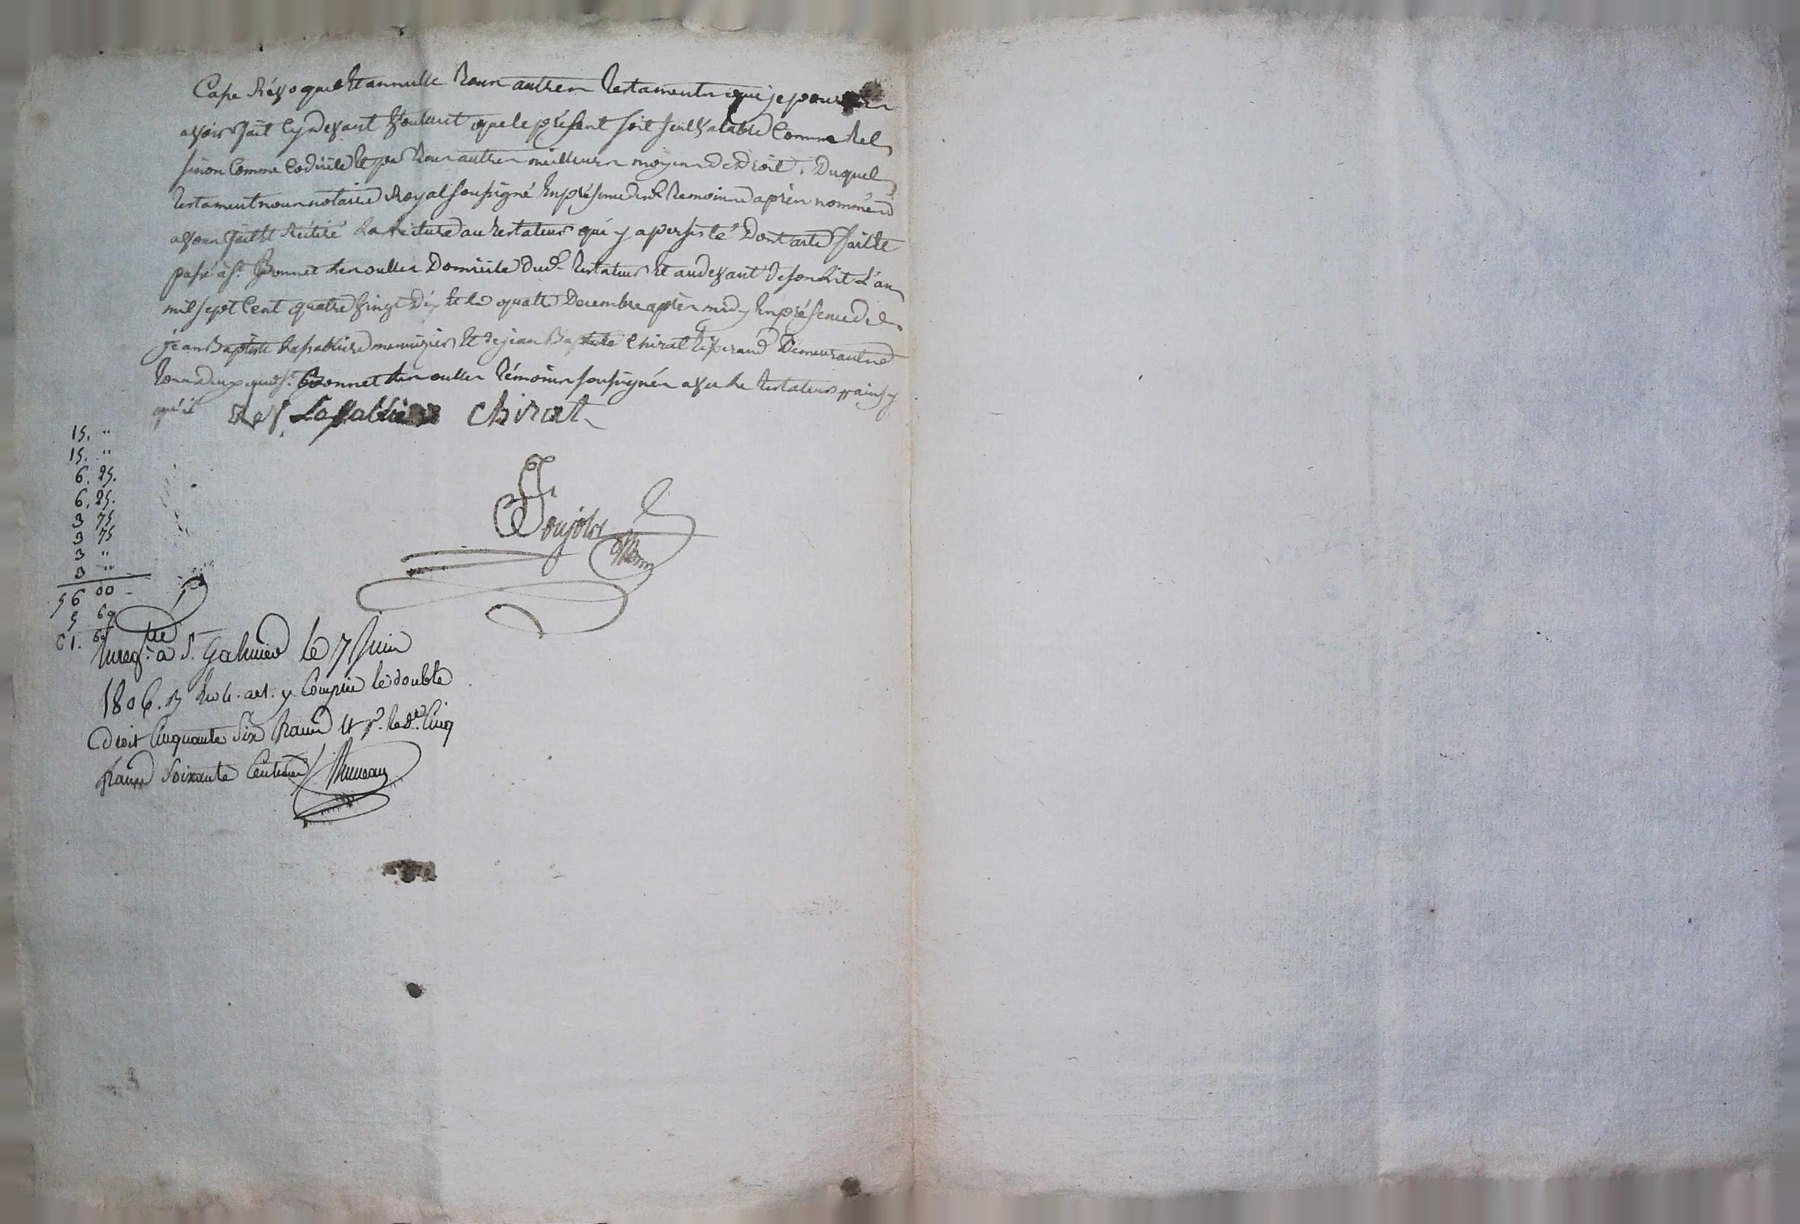 Casse Révoque Et annulle Tous autres Testaments que je pourrois
avoir fait Cy devant Voulant que le présent soit seul valable Comme Tel
sinon Comme Codicile Et par Tous autres meilleurs moyens de droit. Duquel
Testament nous notaire Royal soussigné En présence des Temoins après nommés
avons fait Et Réitéré La Lecture au Testateur qui y a persisté Dont acte fait Et
passé à St. Bonnet Les oulles Domicile dud. Testateur Et au devant de son Lit L'an
mil sept Cent quatre vingt Dix Et Le quatre Decembre après midy En présence de
jean Baptiste Lasablière menuizier Et de jean Baptiste Chirat Demeurants
Tous deux aud. St. Bonnet Les oulles Témoins soussignés avec Le Testateur ainsy
qu'il
Lasablière Chirat
15. "
15. "
6. 25.
6. 25.
3 75
3 75
3 "
3 "
56 00
5 60
61. 60
Enreg. té a St. Galmier le 7 Juin
1806. y Compris le double
Droit Cinquante Six francs et pr. le de. Cinq
francs Soixante Centimes